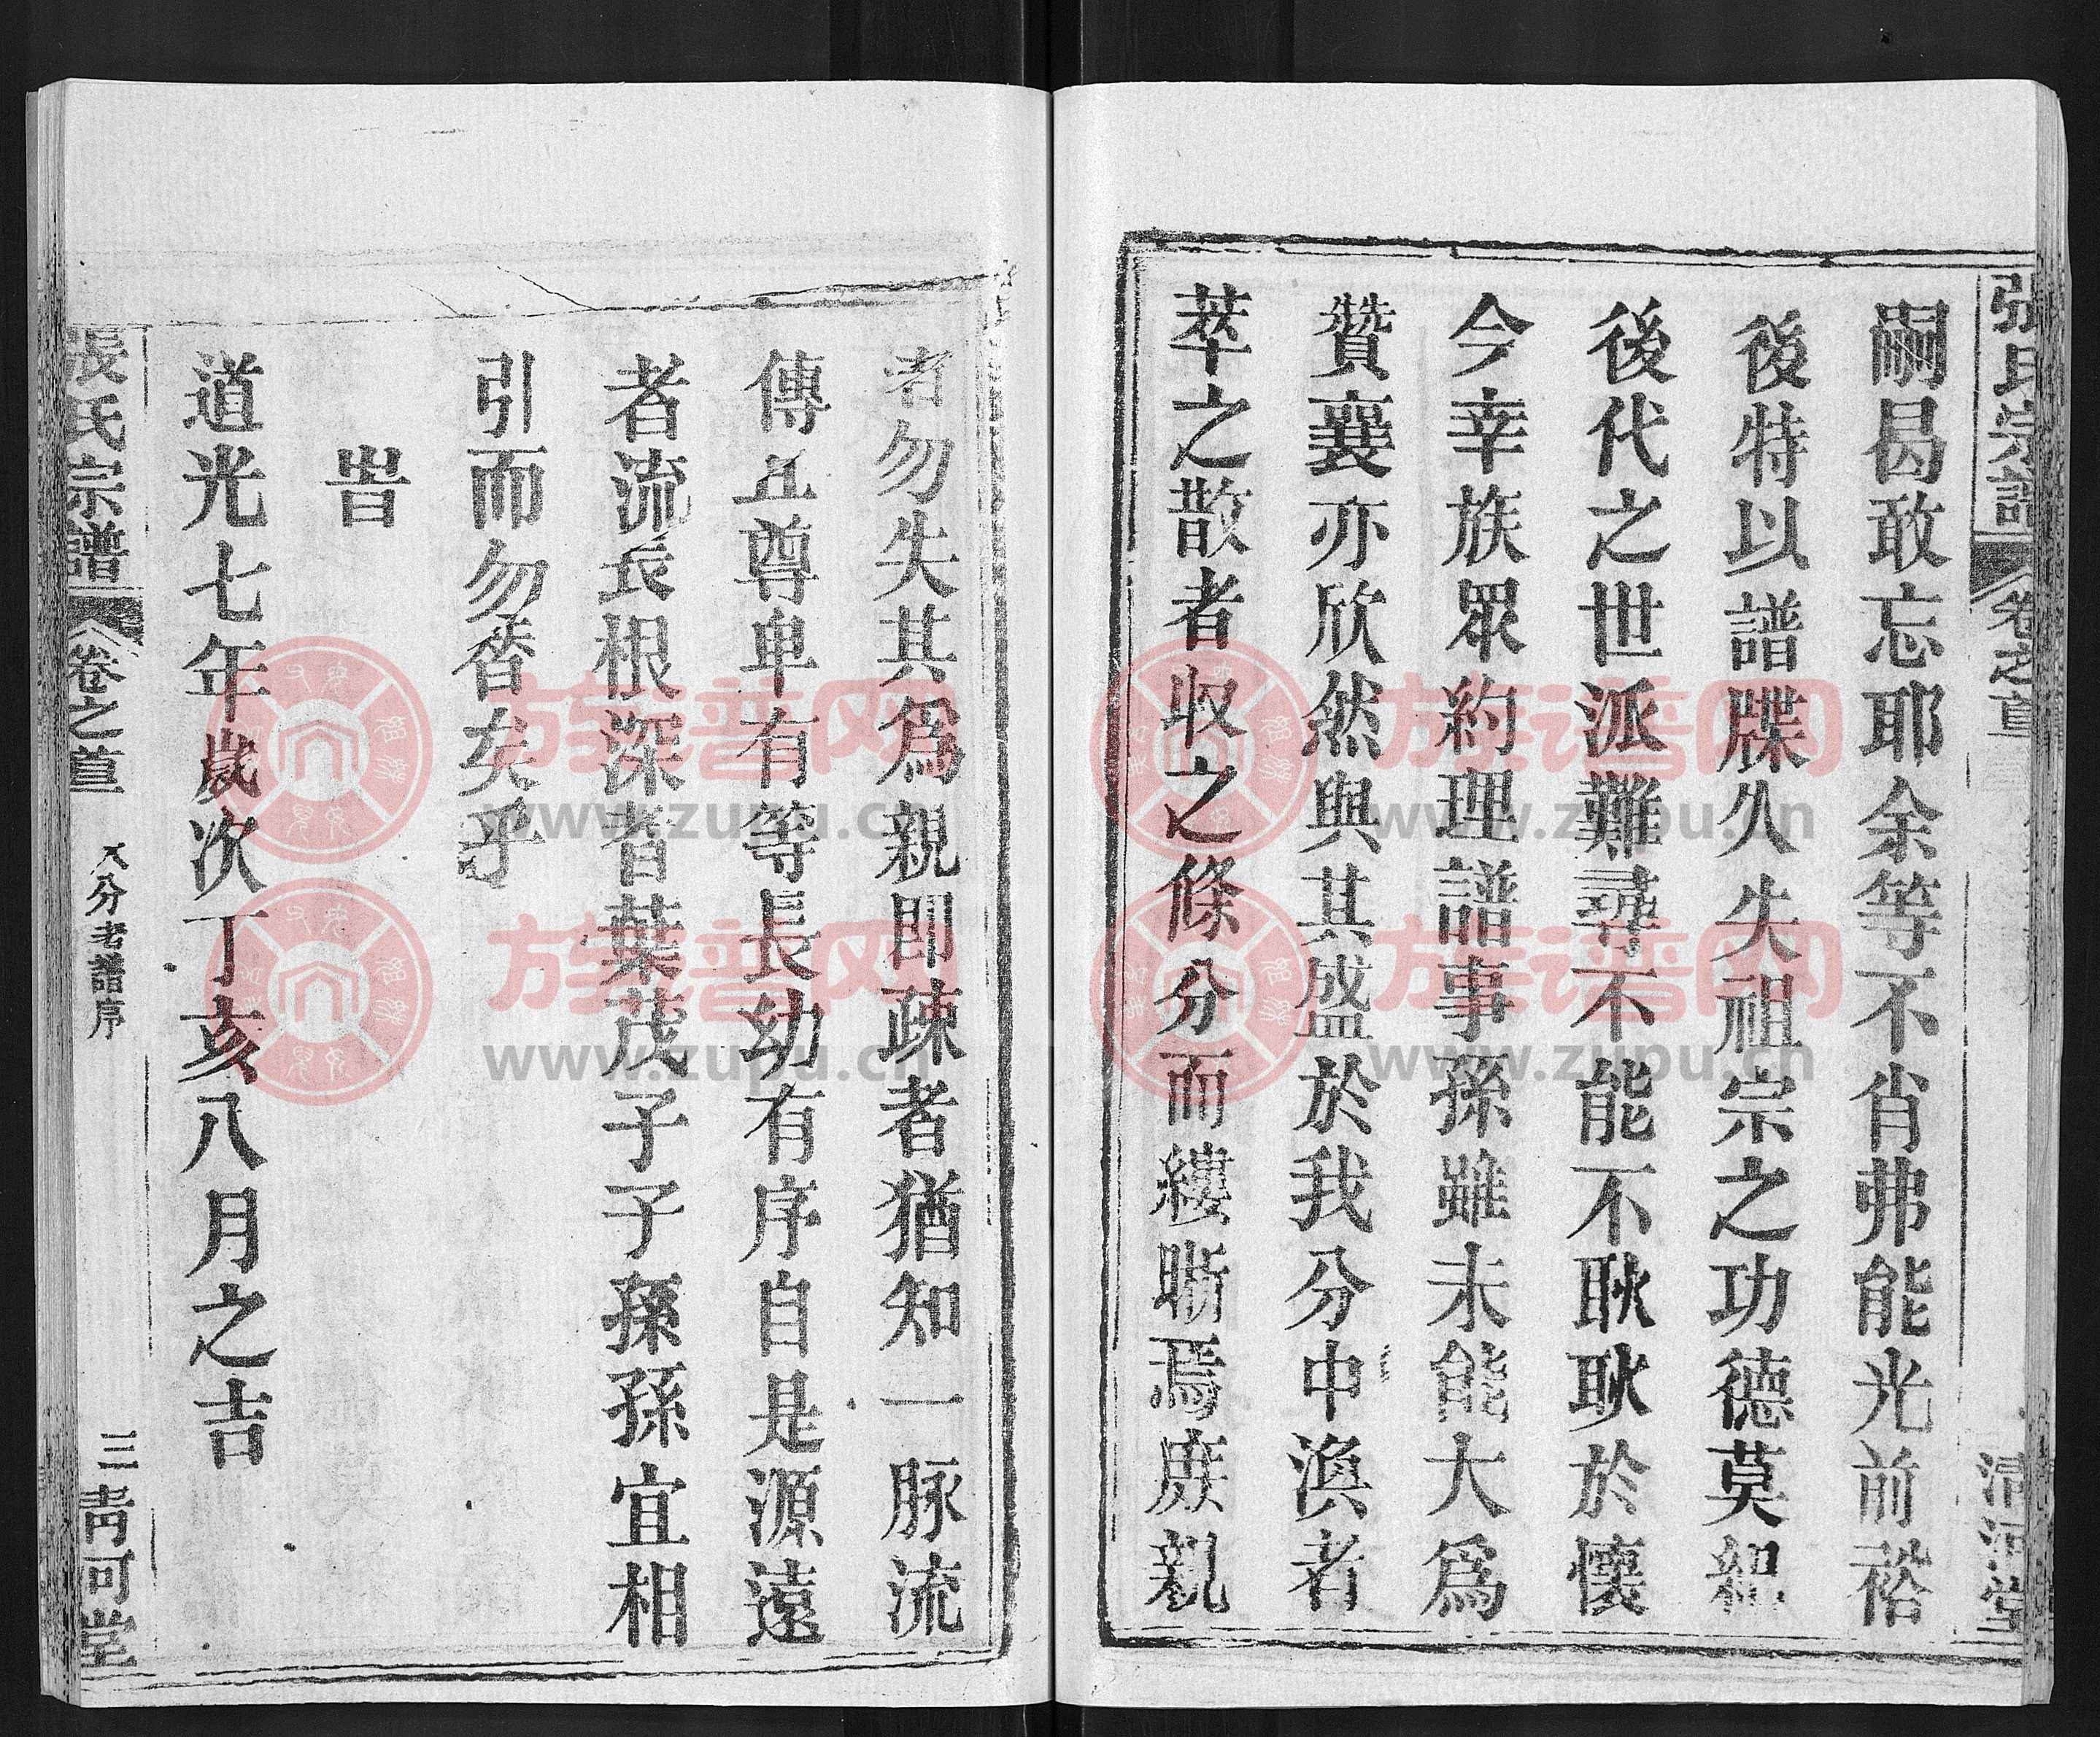 張氏宗譜 卷之首
嗣曷敢忘耶余等不肖弗能光前裕
後特以譜牒久失祖宗之功德莫紀
後代之世派難尋不能不耿耿於懷
今幸族眾約理譜事孫雖未能大為
贊襄亦欣然與其盛於我分中渙者
萃之散者收之條分而縷晰焉庶親
者勿失其為親即疎者猶知一脉流
傳且尊卑有等長幼有序自是源遠
者流長根深者葉茂子子孫孫宜相
引而勿替矣乎
旹
道光七年歲次丁亥八月之吉
張氏宗譜 卷之首 分老譜序 三 堂
族谱网
www.zupu.cn
族谱网
www.zupu.cn
族谱网
www.zupu.cn
族谱网
www.zupu.cn